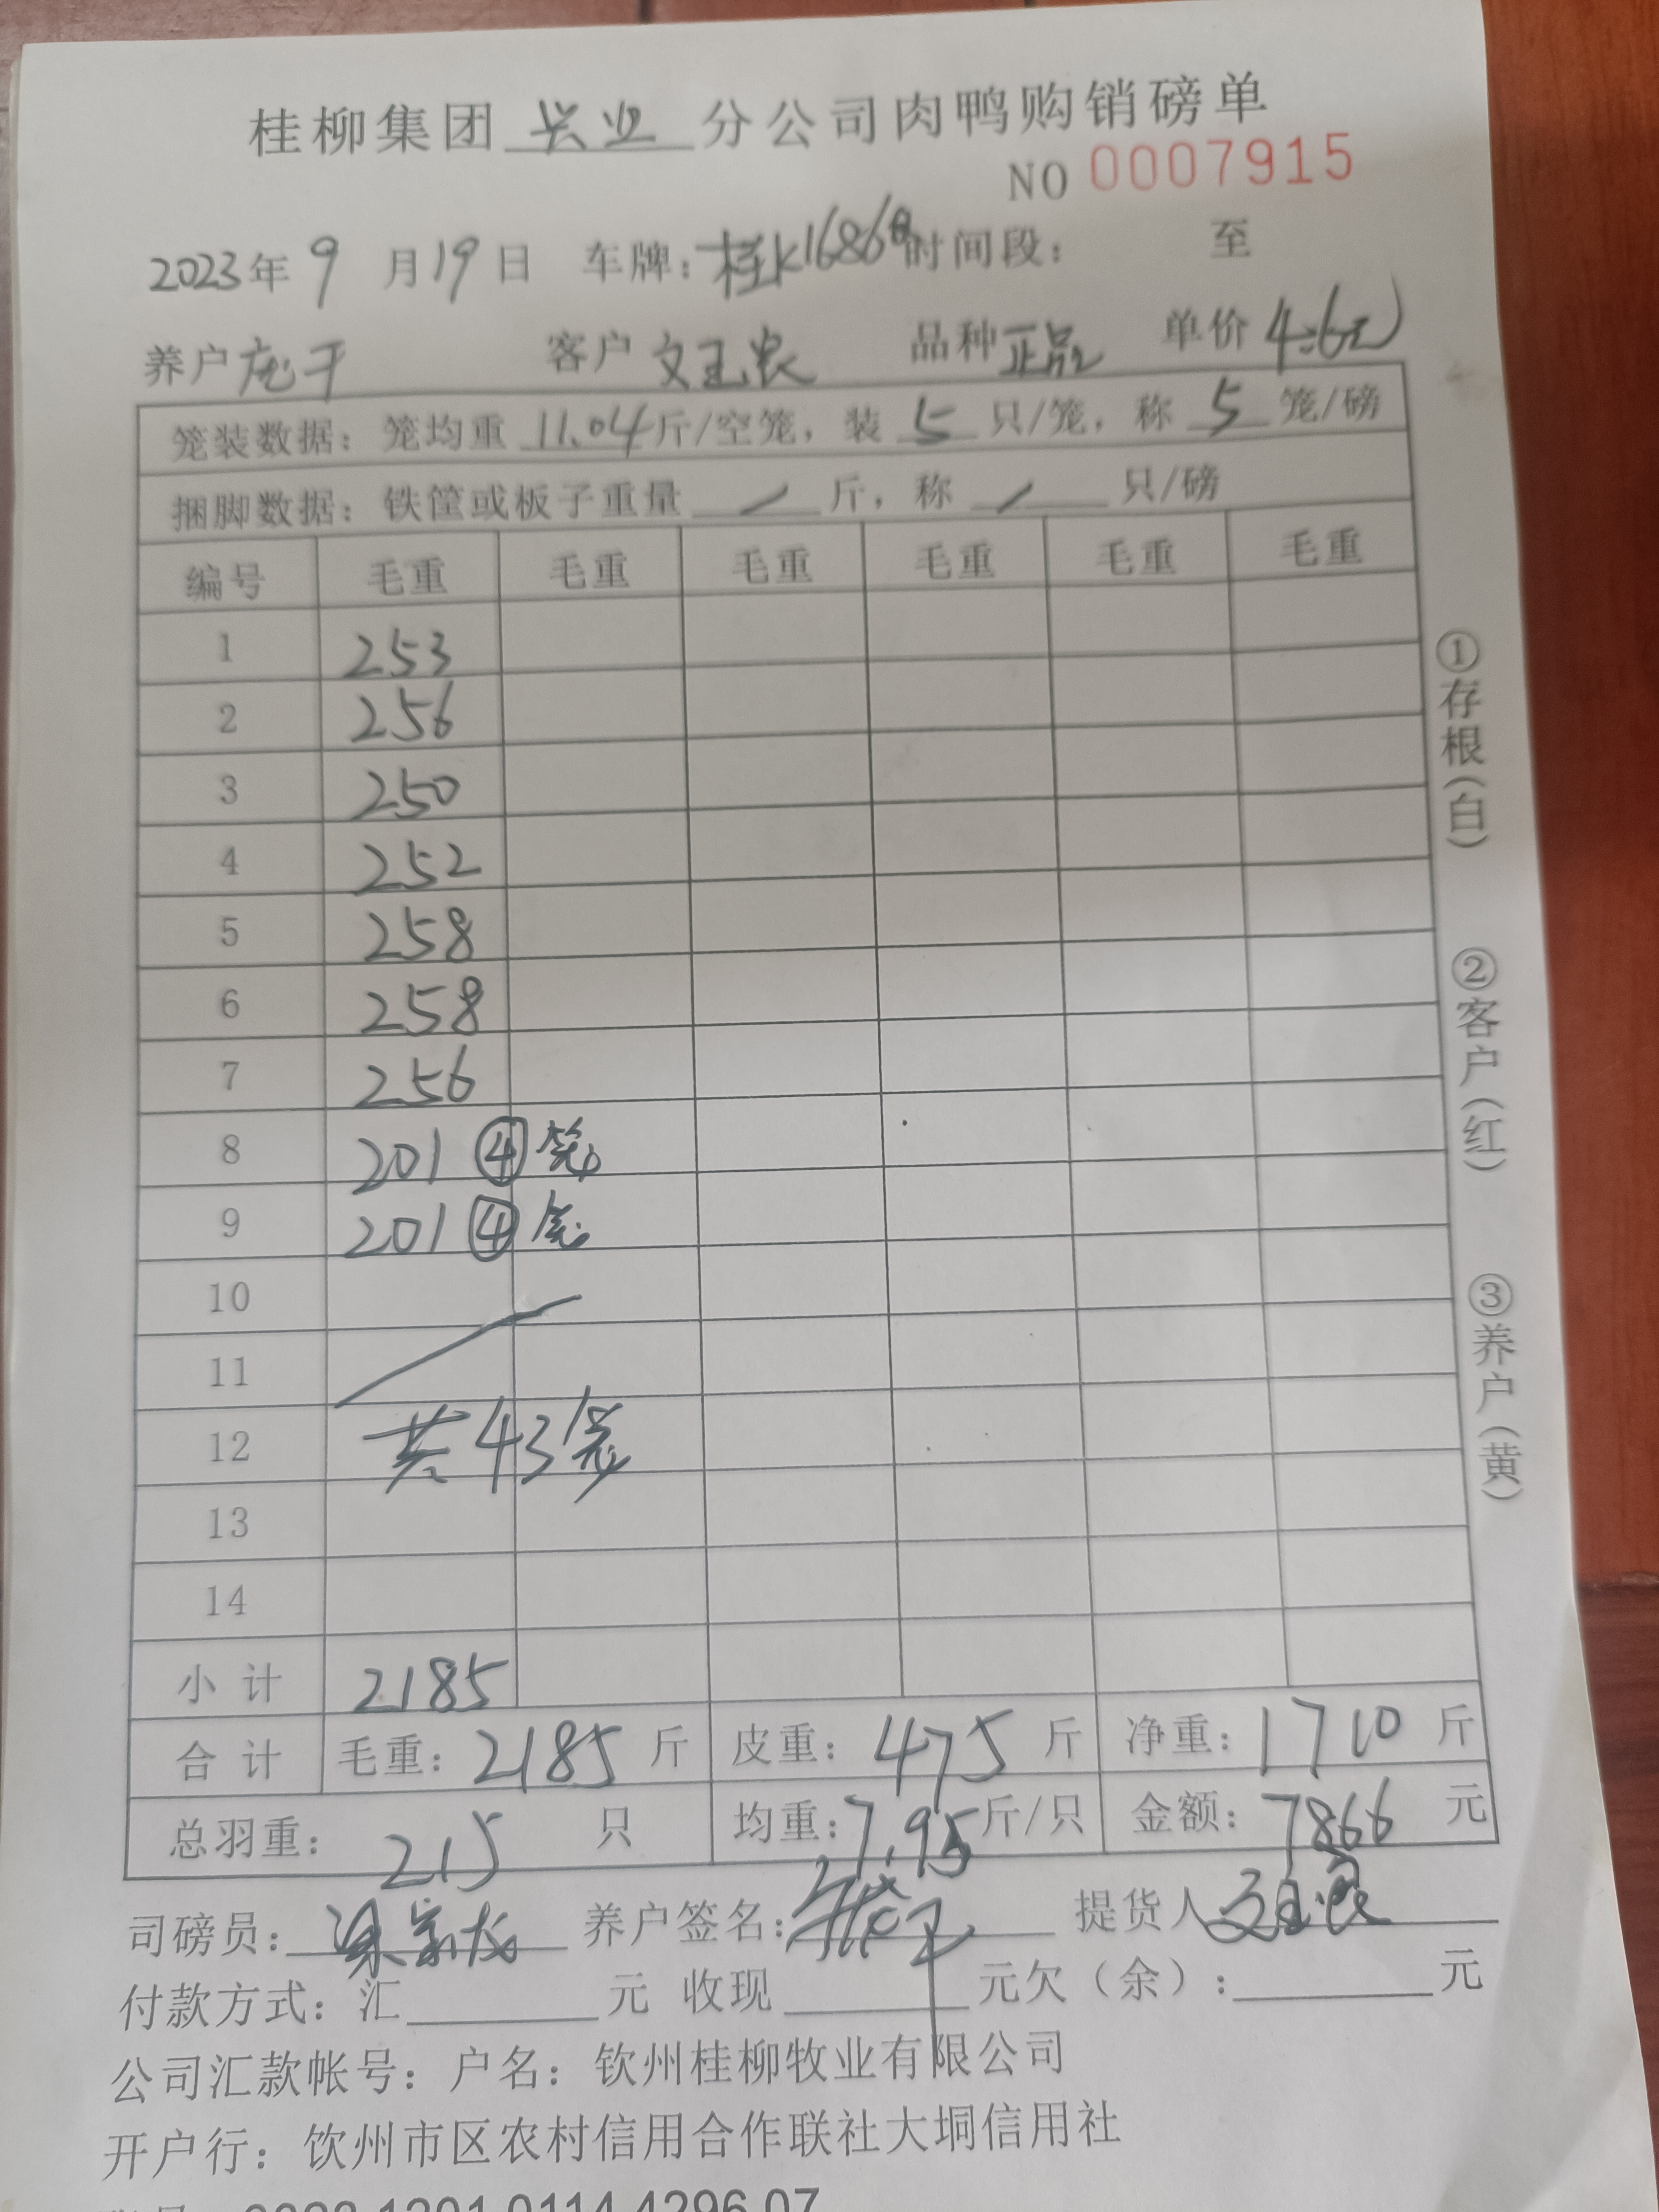 桂柳集团 兴业 分公司肉鸭购销磅单
NO 0007915
2023年 9 月 19 日 车牌: 桂K1686 时间段: 至
养户 庞干 客户 文玉良 品种 正品 单价 4.6元
笼装数据: 笼均重 11.04 斤/空笼, 装 5 只/笼, 称 5 笼/磅
捆脚数据: 铁筐或板子重量 / 斤, 称 / 只/磅
编号 毛重 毛重 毛重 毛重 毛重 毛重
1 253
2 256
3 250
4 252
5 258
6 258
7 256
8 201 ④笼
9 201 ④笼
10
11
12 共43笼
13
14
小 计 2185
合 计 毛重: 2185 斤 皮重: 475 斤 净重: 1710 斤
总羽重: 215 只 均重: 7.95 斤/只 金额: 7866 元
①存根(白)
②客户(红)
③养户(黄)
司磅员: 梁宗龙 养户签名: 提货人 文玉良
付款方式: 汇 元 收现 元欠(余): 元
公司汇款帐号: 户名: 钦州桂柳牧业有限公司
开户行: 钦州市区农村信用合作联社大垌信用社